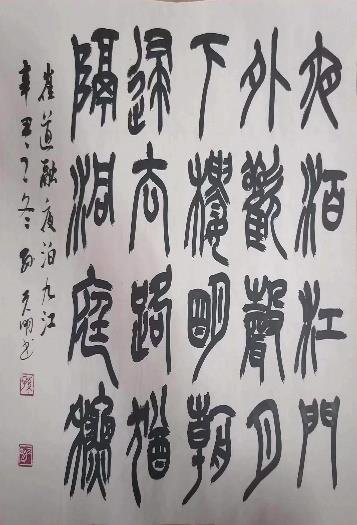 夜泊江門
外歡聲月
下樓明朝
歸去路猶
隔洞庭秋
崔道融夜泊九江
辛丑冬明书